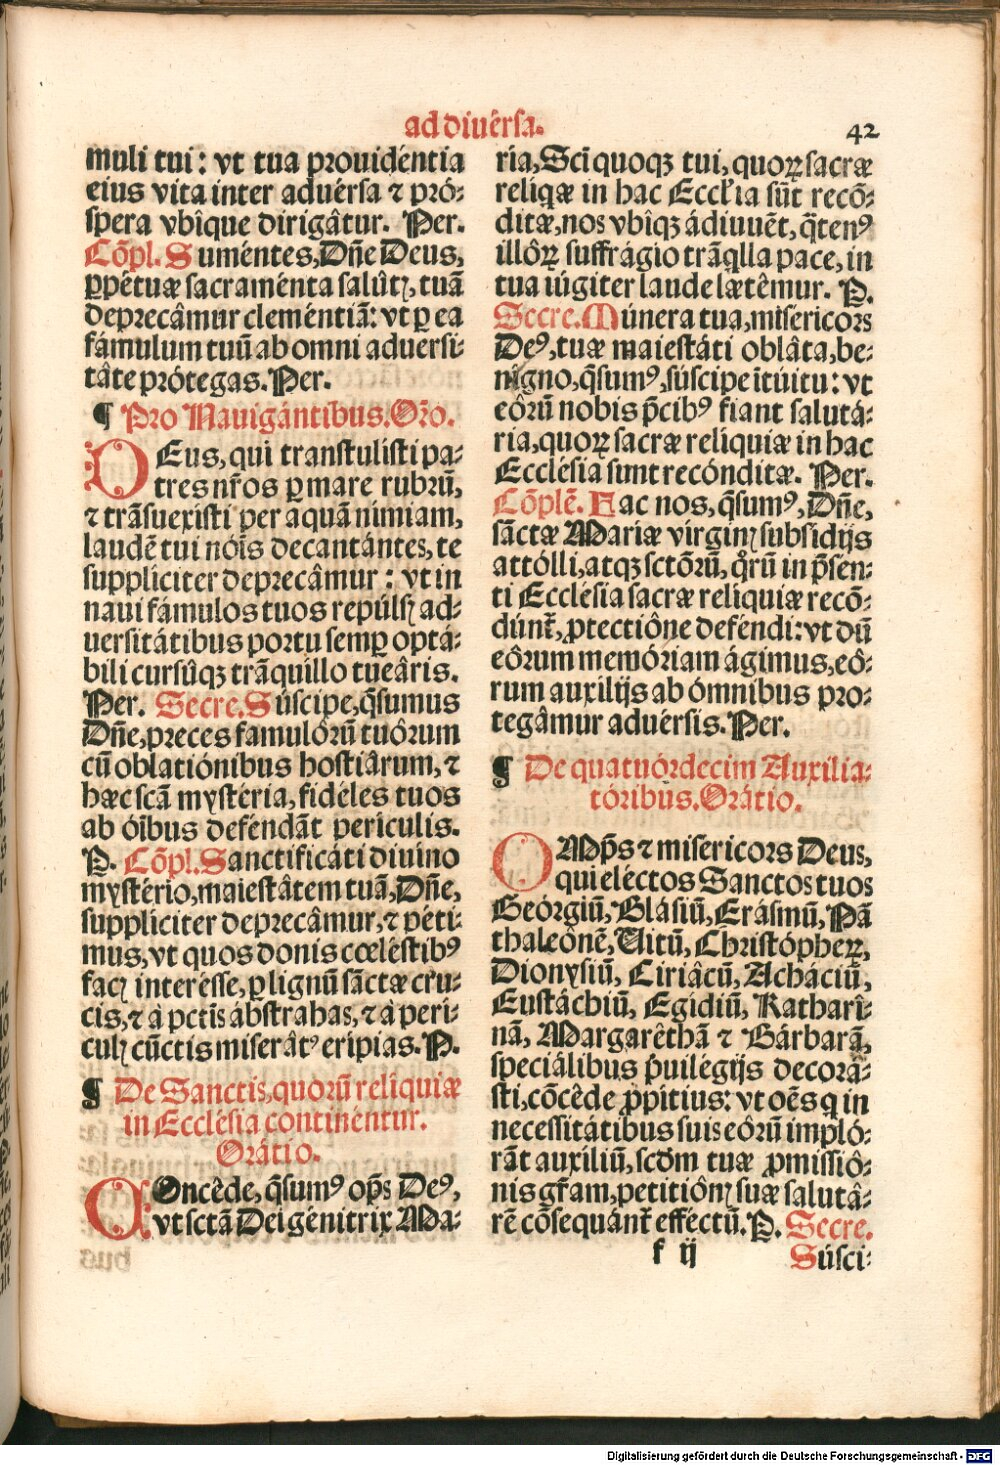 ad diuérsa.
42
muli tui: vt tua prouidéntia
eius vita inter aduérsa ⁊ pró⸗
spera vbîque dirigâtur. Per.
Cõpl. Suméntes, Dñe Deus,
ꝑpétuæ sacraménta salûtꝭ, tuã
deprecâmur cleméntiã: vt ꝑ ea
fámulum tuũ ab omni aduersi⸗
tâte prótegas. Per.
¶ Pro Nauigántibus. Orõ.
DEus, qui transtulísti pa⸗
tres nr̃os ꝑ mare rubrũ,
⁊ trãsuexísti per aquã nimiam,
laudẽ tui nóis̃ decantántes, te
supplíciter deprecâmur: vt in
naui fámulos tuos repúlsꝭ ad⸗
uersitátibus portu semꝑ optá⸗
bili cursûqꝫ trãquíllo tueâris.
Per. Secre. Súscipe, q̃sumus
Dñe, preces famulôrũ tuôrum
cũ oblatiónibus hostiârum, ⁊
hæc scã mystéria, fidéles tuos
ab óibus defendãt perículis.
P. Cõpl. Sanctificáti diuino
mystério, maiestâtem tuã, Dñe,
supplíciter deprecâmur, ⁊ péti⸗
mus, vt quos donis cœléstibꝰ
facꝭ interésse, ꝑ lignũ sãctæ cru⸗
cis, ⁊ à pctĩs ábstrahas, ⁊ à perí⸗
culꝭ cũctis miserâtꝰ erípias. P.
¶ De Sanctis, quorũ relíquiæ
in Ecclésia continéntur.
Orátio.
COncêde, q̃sumꝰ op̃s Deꝰ,
vt sctã Dei génitrix Ma⸗
ria, Sci quoqꝫ tui, quoꝝ sacræ
reliq̃æ in hac Eccl'ia sũt recõ⸗
ditæ, nos vbîqꝫ ádiuuẽt, q̃tenꝰ
illôꝝ suffrágio trãq̃lla pace, in
tua iúgiter laude lætêmur. P.
Secre. Múnera tua, misericors
Deꝰ, tuæ maiestáti oblâta, be⸗
nígno, q̃sumꝰ, súscipe ĩtúitu: vt
eôrũ nobis p̃cibꝰ fiant salutá⸗
ria, quoꝝ sacræ relíquiæ in hac
Ecclésia sunt recónditæ. Per.
Cõplẽ. Fac nos, q̃sumꝰ, Dñe,
sãctæ Mariæ virginꝭ subsídijs
attólli, atqꝫ sctõrũ, q̊rũ in p̃sen⸗
ti Ecclésia sacræ relíquiæ recõ⸗
dúnt̃, ꝓtectiône deféndi: vt dũ
eôrum memóriam ágimus, eô⸗
rum auxílijs ab ómnibus pro⸗
tegâmur aduérsis. Per.
¶ De quatuórdecim Auxilia⸗
tóribus. Orátio.
OMp̃s ⁊ miséricors Deus,
qui eléctos Sanctos tuos
Geórgiũ, Blásiũ, Erásmũ, Pã
thaleônẽ, Uitũ, Christópheꝝ,
Dionýsiũ, Ciriâcũ, Acháciũ,
Eustáchiũ, Egídiũ, Katharî⸗
nã, Margarêthã ⁊ Bárbarã,
speciálibus p̃uilégijs decorâ⸗
sti, cõcêde ꝓpítius: vt oẽs q̃ in
necessitátibus suis eôrũ impló⸗
rãt auxíliũ, scdm̃ tuæ ꝓmissiô⸗
nis gr̃am, petitiônꝭ suæ salutâ⸗
rẽ cõsequánt̃ efféctũ. P. Secre.
f ij
Súsci⸗
Digitalisierung gefördert durch die Deutsche Forschungsgemeinschaft - DFG